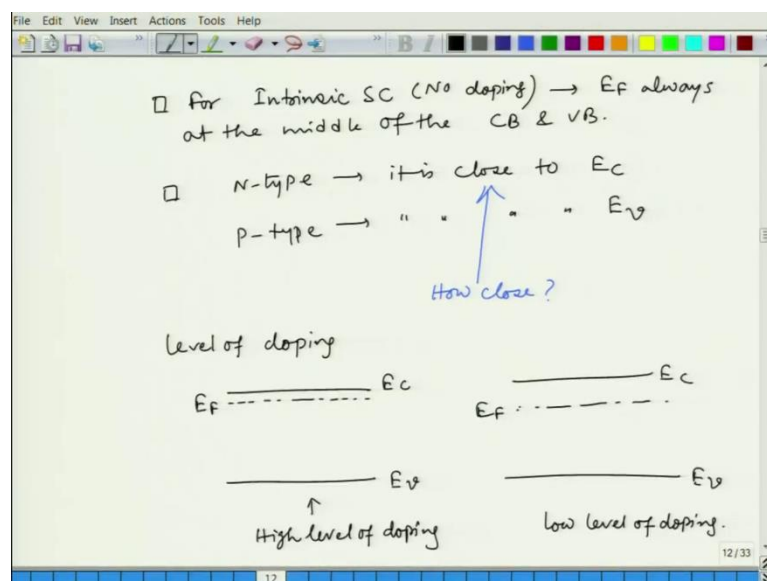 File Edit View Insert Actions Tools Help
B I
□ For Intrinsic SC (No doping) → EF always
at the middle of the CB & VB.
□ N-type → it is close to Ec
P-type → " " " " Ev
How close?
level of doping
Ec
EF
Ec
EF
Ev
Ev
↑
High level of doping
low level of doping.
12/33
12